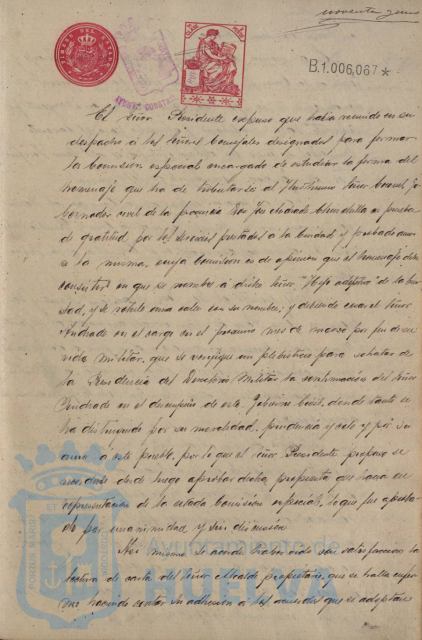 noventa y uno
TIMBRE DEL ESTADO
B.1.006,067*
El Señor Presidente expuso que había reunido en su
despacho a los Señores Concejales designados para formar
la Comisión especial encargada de estudiar la forma del
homenaje que ha de tributarse al Ilustrísimo Señor Coronel Go-
bernador civil de la provincia Don Andrade Chinchilla en prueba
de gratitud por los servicios prestados a la Ciudad y probado amor
a la misma, cuya Comisión es de opinión que el homenaje debe
consistir en que se nombre a dicho Señor "Hijo adoptivo" de la Ciu-
dad, y se rotule una calle con su nombre; y debiendo cesar el Señor
Andrade en el cargo en el próximo mes de marzo por
vida militar, que se verifique un plebiscito para solicitar de
la Presidencia del Directorio Militar la continuación del Señor
Andrade en el desempeño de este Gobierno Civil, donde tanto se
ha distinguido por su moralidad, prudencia y celo y por su
amor a este pueblo, por lo que el Señor Presidente propone se
acuerde desde luego aprobar dicha propuesta que hacía en
representación de la citada Comisión especial, lo que fue aproba-
do por unanimidad y sin discusión
Así mismo se acordó haber oído con satisfacción la
lectura de carta del Señor Alcalde propietario, que se halla enfer-
mo haciendo constar su adhesión a los acuerdos que se adoptaren
Ayuntamiento de
HUELVA